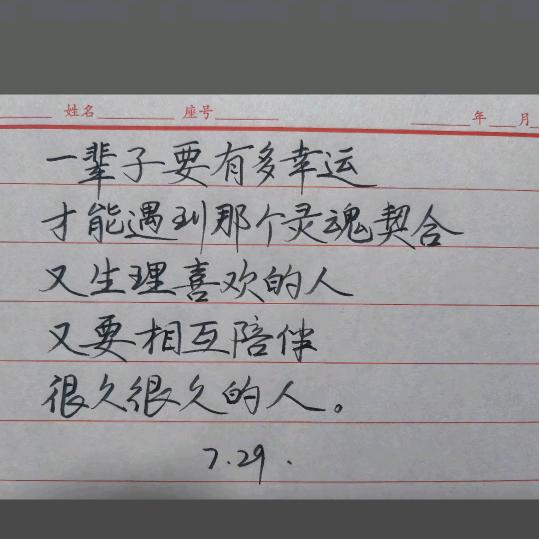 姓名 座号 年 月
一辈子要有多幸运
才能遇到那个灵魂契合
又生理喜欢的人
又要相互陪伴
很久很久的人。
7.29.